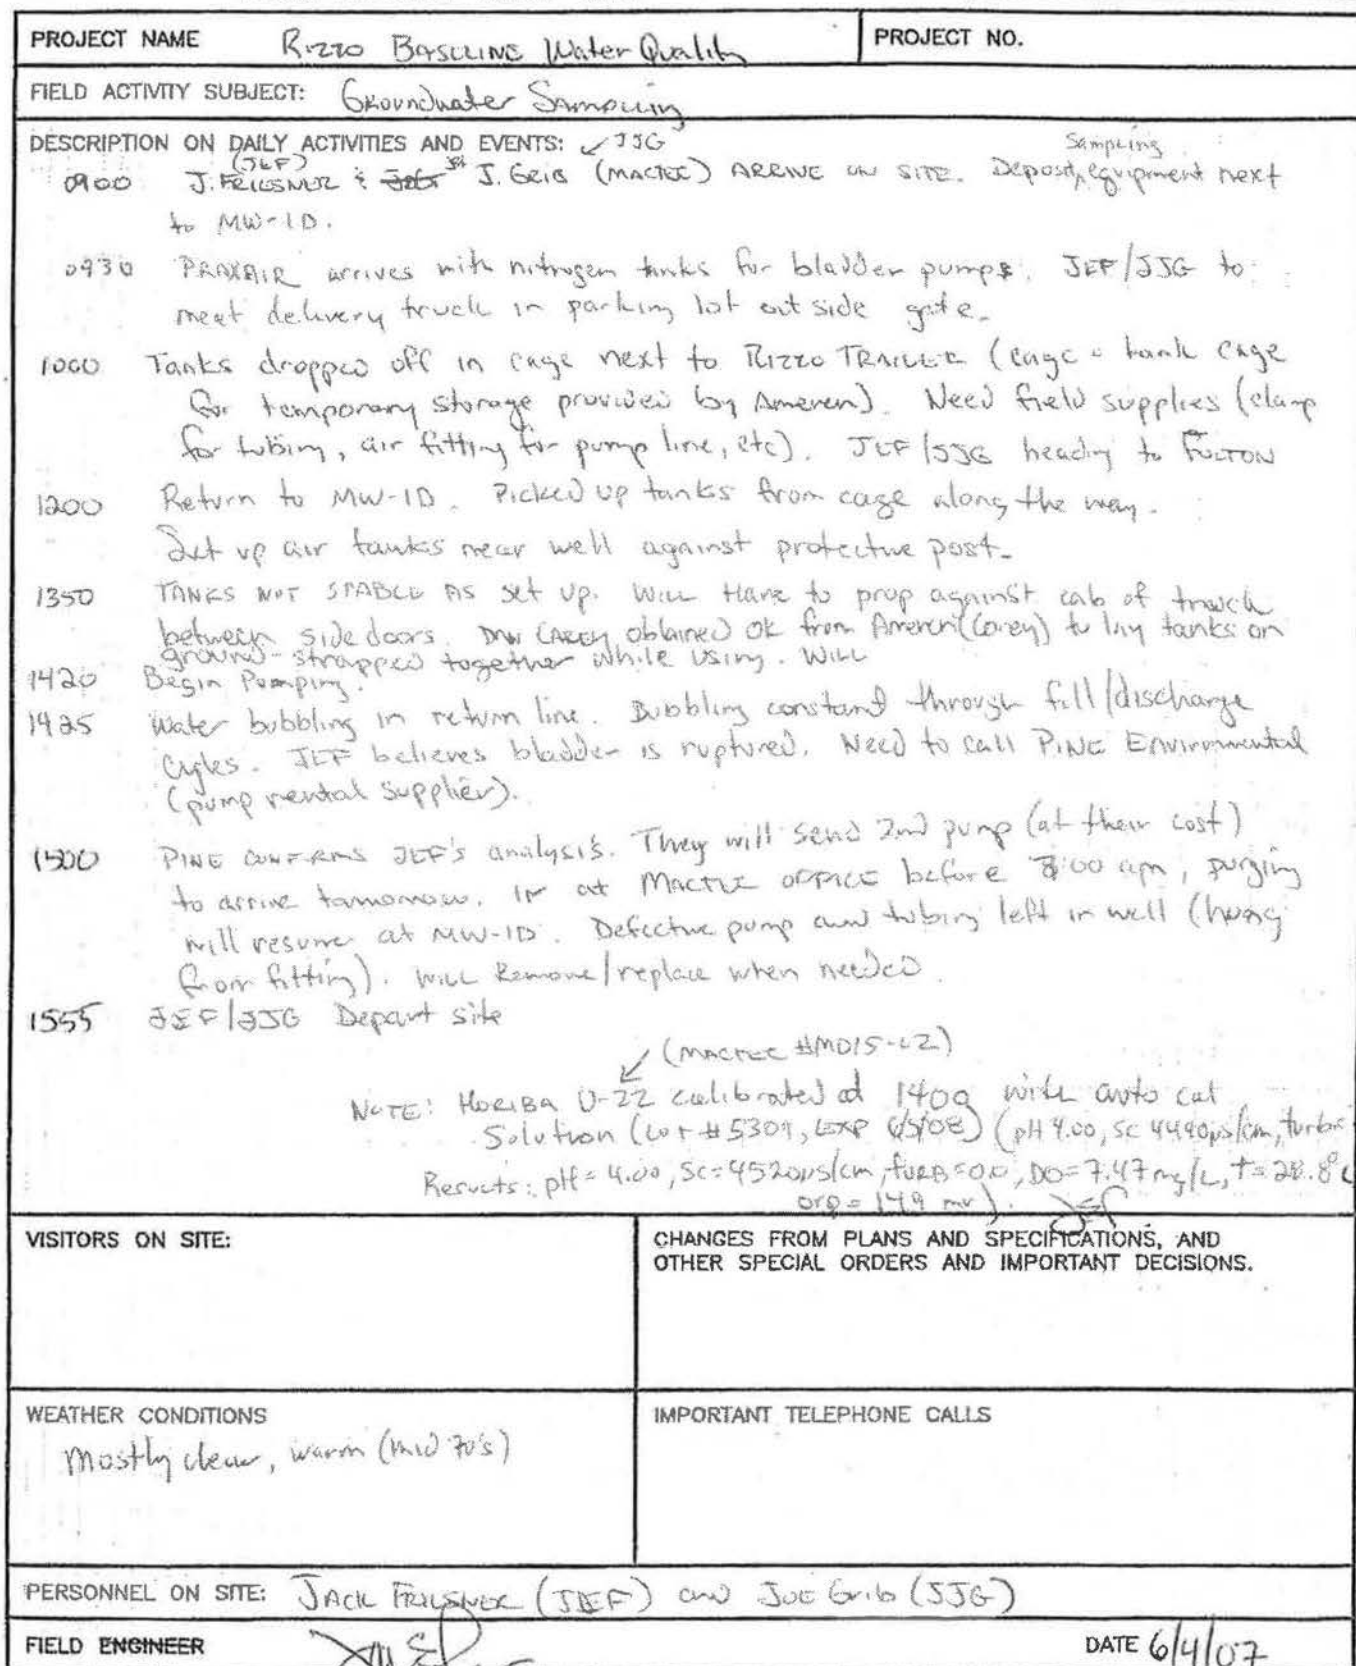 PROJECT NAME Rizzo BASELINE Water Quality PROJECT NO.
FIELD ACTIVITY SUBJECT: Groundwater Sampling
DESCRIPTION ON DAILY ACTIVITIES AND EVENTS: JJG
(JEF) Sampling
0900 J. FRIESNER & J. Grib (MACTEC) ARRIVE ON SITE. Deposit equipment next
to MW-1D.
0930 PRAXAIR arrives with nitrogen tanks for bladder pumps. JEF/JJG to
meet delivery truck in parking lot outside gate.
1000 Tanks dropped off in cage next to Rizzo TRAILER (cage = tank cage
for temporary storage provided by Ameren). Need field supplies (clamp
for tubing, air fitting for pump line, etc). JEF/JJG heading to FULTON
1200 Return to MW-1D. Picked up tanks from cage along the way.
Set up air tanks near well against protective post.
1350 TANKS NOT STABLE AS set up. Will Have to prop against cab of truck
between side doors. obtained OK from Ameren (Corey) to lay tanks on
ground - strapped together while using. Will
1420 Begin Pumping.
1425 Water bubbling in return line. Bubbling constant through fill/discharge
cycles. JEF believes bladder is ruptured. Need to call PINE Environmental
(pump rental supplier).
1500 PINE CONFIRMS JEF's analysis. They will send 2nd pump (at their cost)
to arrive tomorrow. If at MACTEC OFFICE before :00 , purging
will resume at MW-1D. Defective pump and tubing left in well (hung
from fitting). Will Remove/replace when needed.
1555 JEF/JJG Depart site
(MACTEC #MO15-22)
NOTE: HORIBA U-22 calibrated at 1400 with auto cal
Solution (Lot #5309, EXP 6/5/08) (pH 4.00, SC 4490µs/cm, turb
Results: pH = 4.00, SC = 4520µs/cm, TURB = 0.0, DO = 7.47 mg/L, T = 28.8°C
orp = 149 mv). JEF
VISITORS ON SITE:
CHANGES FROM PLANS AND SPECIFICATIONS, AND
OTHER SPECIAL ORDERS AND IMPORTANT DECISIONS.
WEATHER CONDITIONS
Mostly clear, warm (mid 70's)
IMPORTANT TELEPHONE CALLS
PERSONNEL ON SITE: JACK FRIESNER (JEF) and JOE Grib (JJG)
FIELD ENGINEER DATE 6/4/07